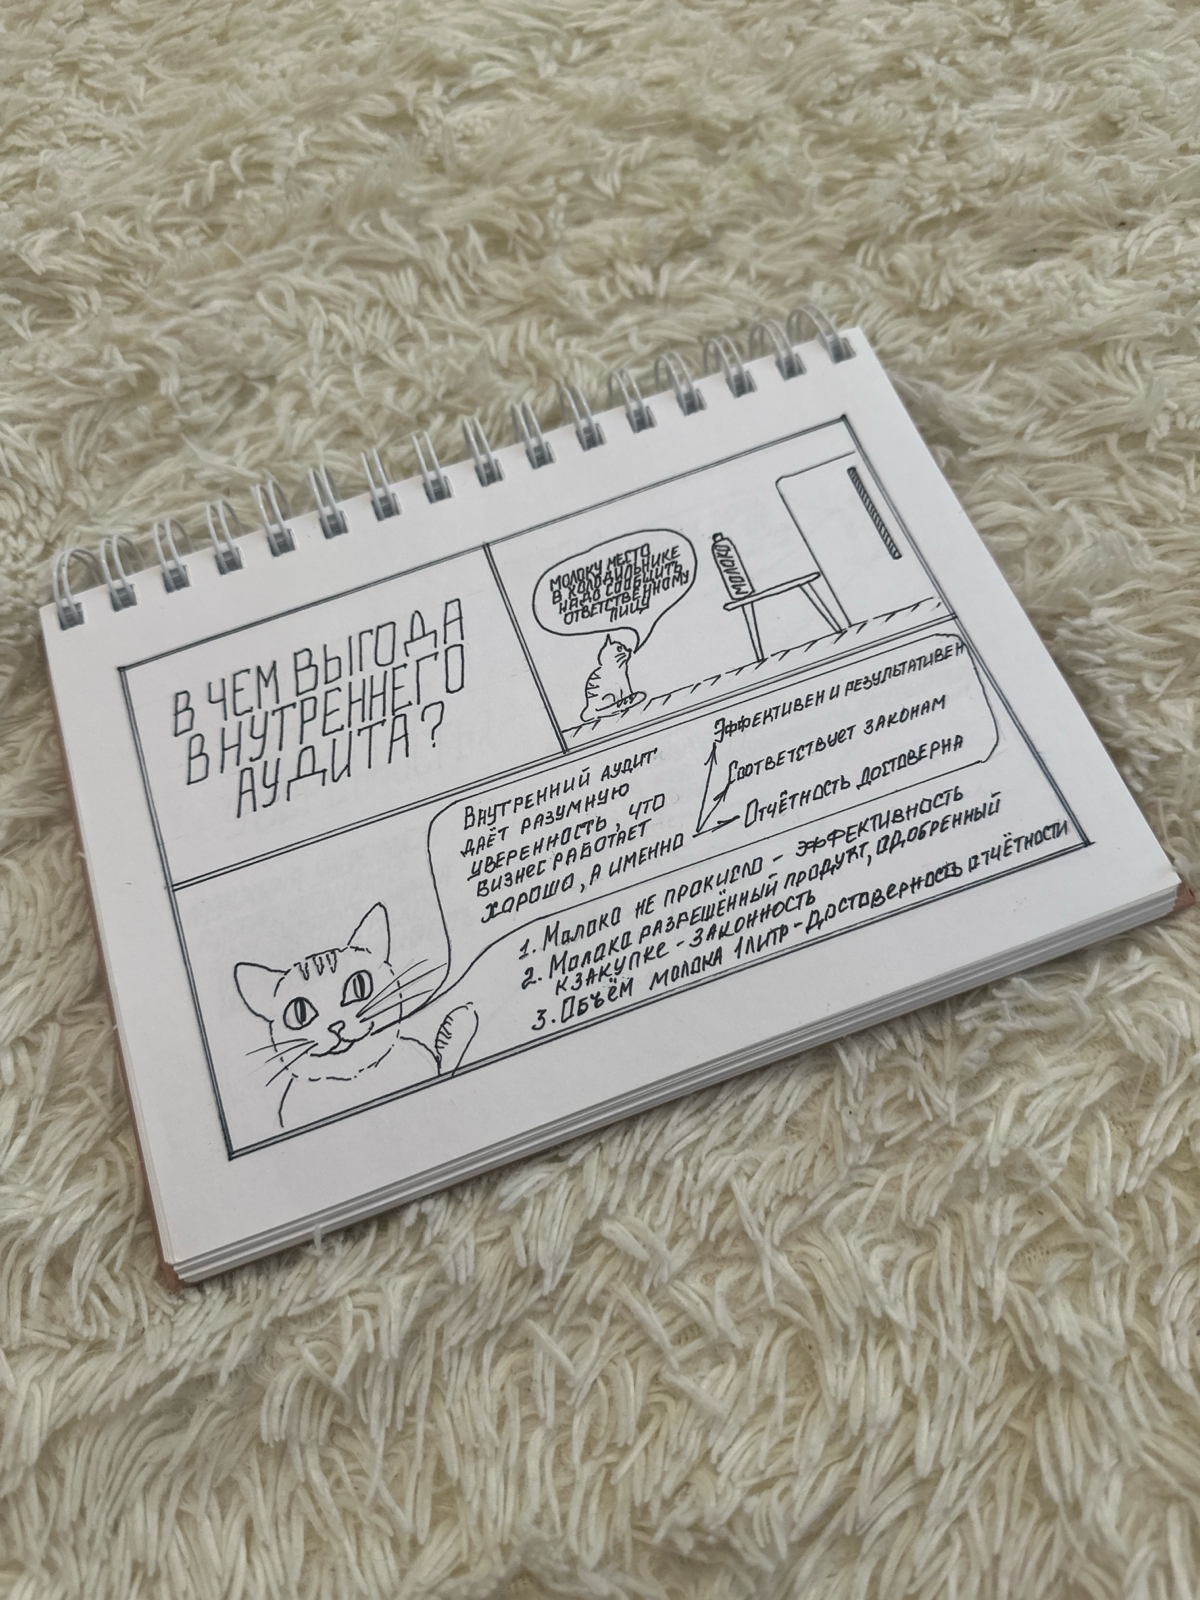 В ЧЕМ ВЫГОДА
ВНУТРЕННЕГО
АУДИТА?
МОЛОКУ МЕСТО
В ХОЛОДИЛЬНИКЕ
НАДО СООБЩИТЬ
ОТВЕТСТВЕННОМУ
ЛИЦУ
МОЛОКО
ВНУТРЕННИЙ АУДИТ
ДАЁТ РАЗУМНУЮ
УВЕРЕННОСТЬ, ЧТО
БИЗНЕС РАБОТАЕТ
ХОРОШО, А ИМЕННО
ЭФФЕКТИВЕН И РЕЗУЛЬТАТИВЕН
СООТВЕТСТВУЕТ ЗАКОНАМ
ОТЧЁТНОСТЬ ДОСТОВЕРНА
1. МОЛОКО НЕ ПРОКИСЛО - ЭФФЕКТИВНОСТЬ
2. МОЛОКО РАЗРЕШЁННЫЙ ПРОДУКТ, ОДОБРЕННЫЙ
К ЗАКУПКЕ - ЗАКОННОСТЬ
3. ОБЪЁМ МОЛОКА 1 ЛИТР - ДОСТОВЕРНОСТЬ ОТЧЁТНОСТИ